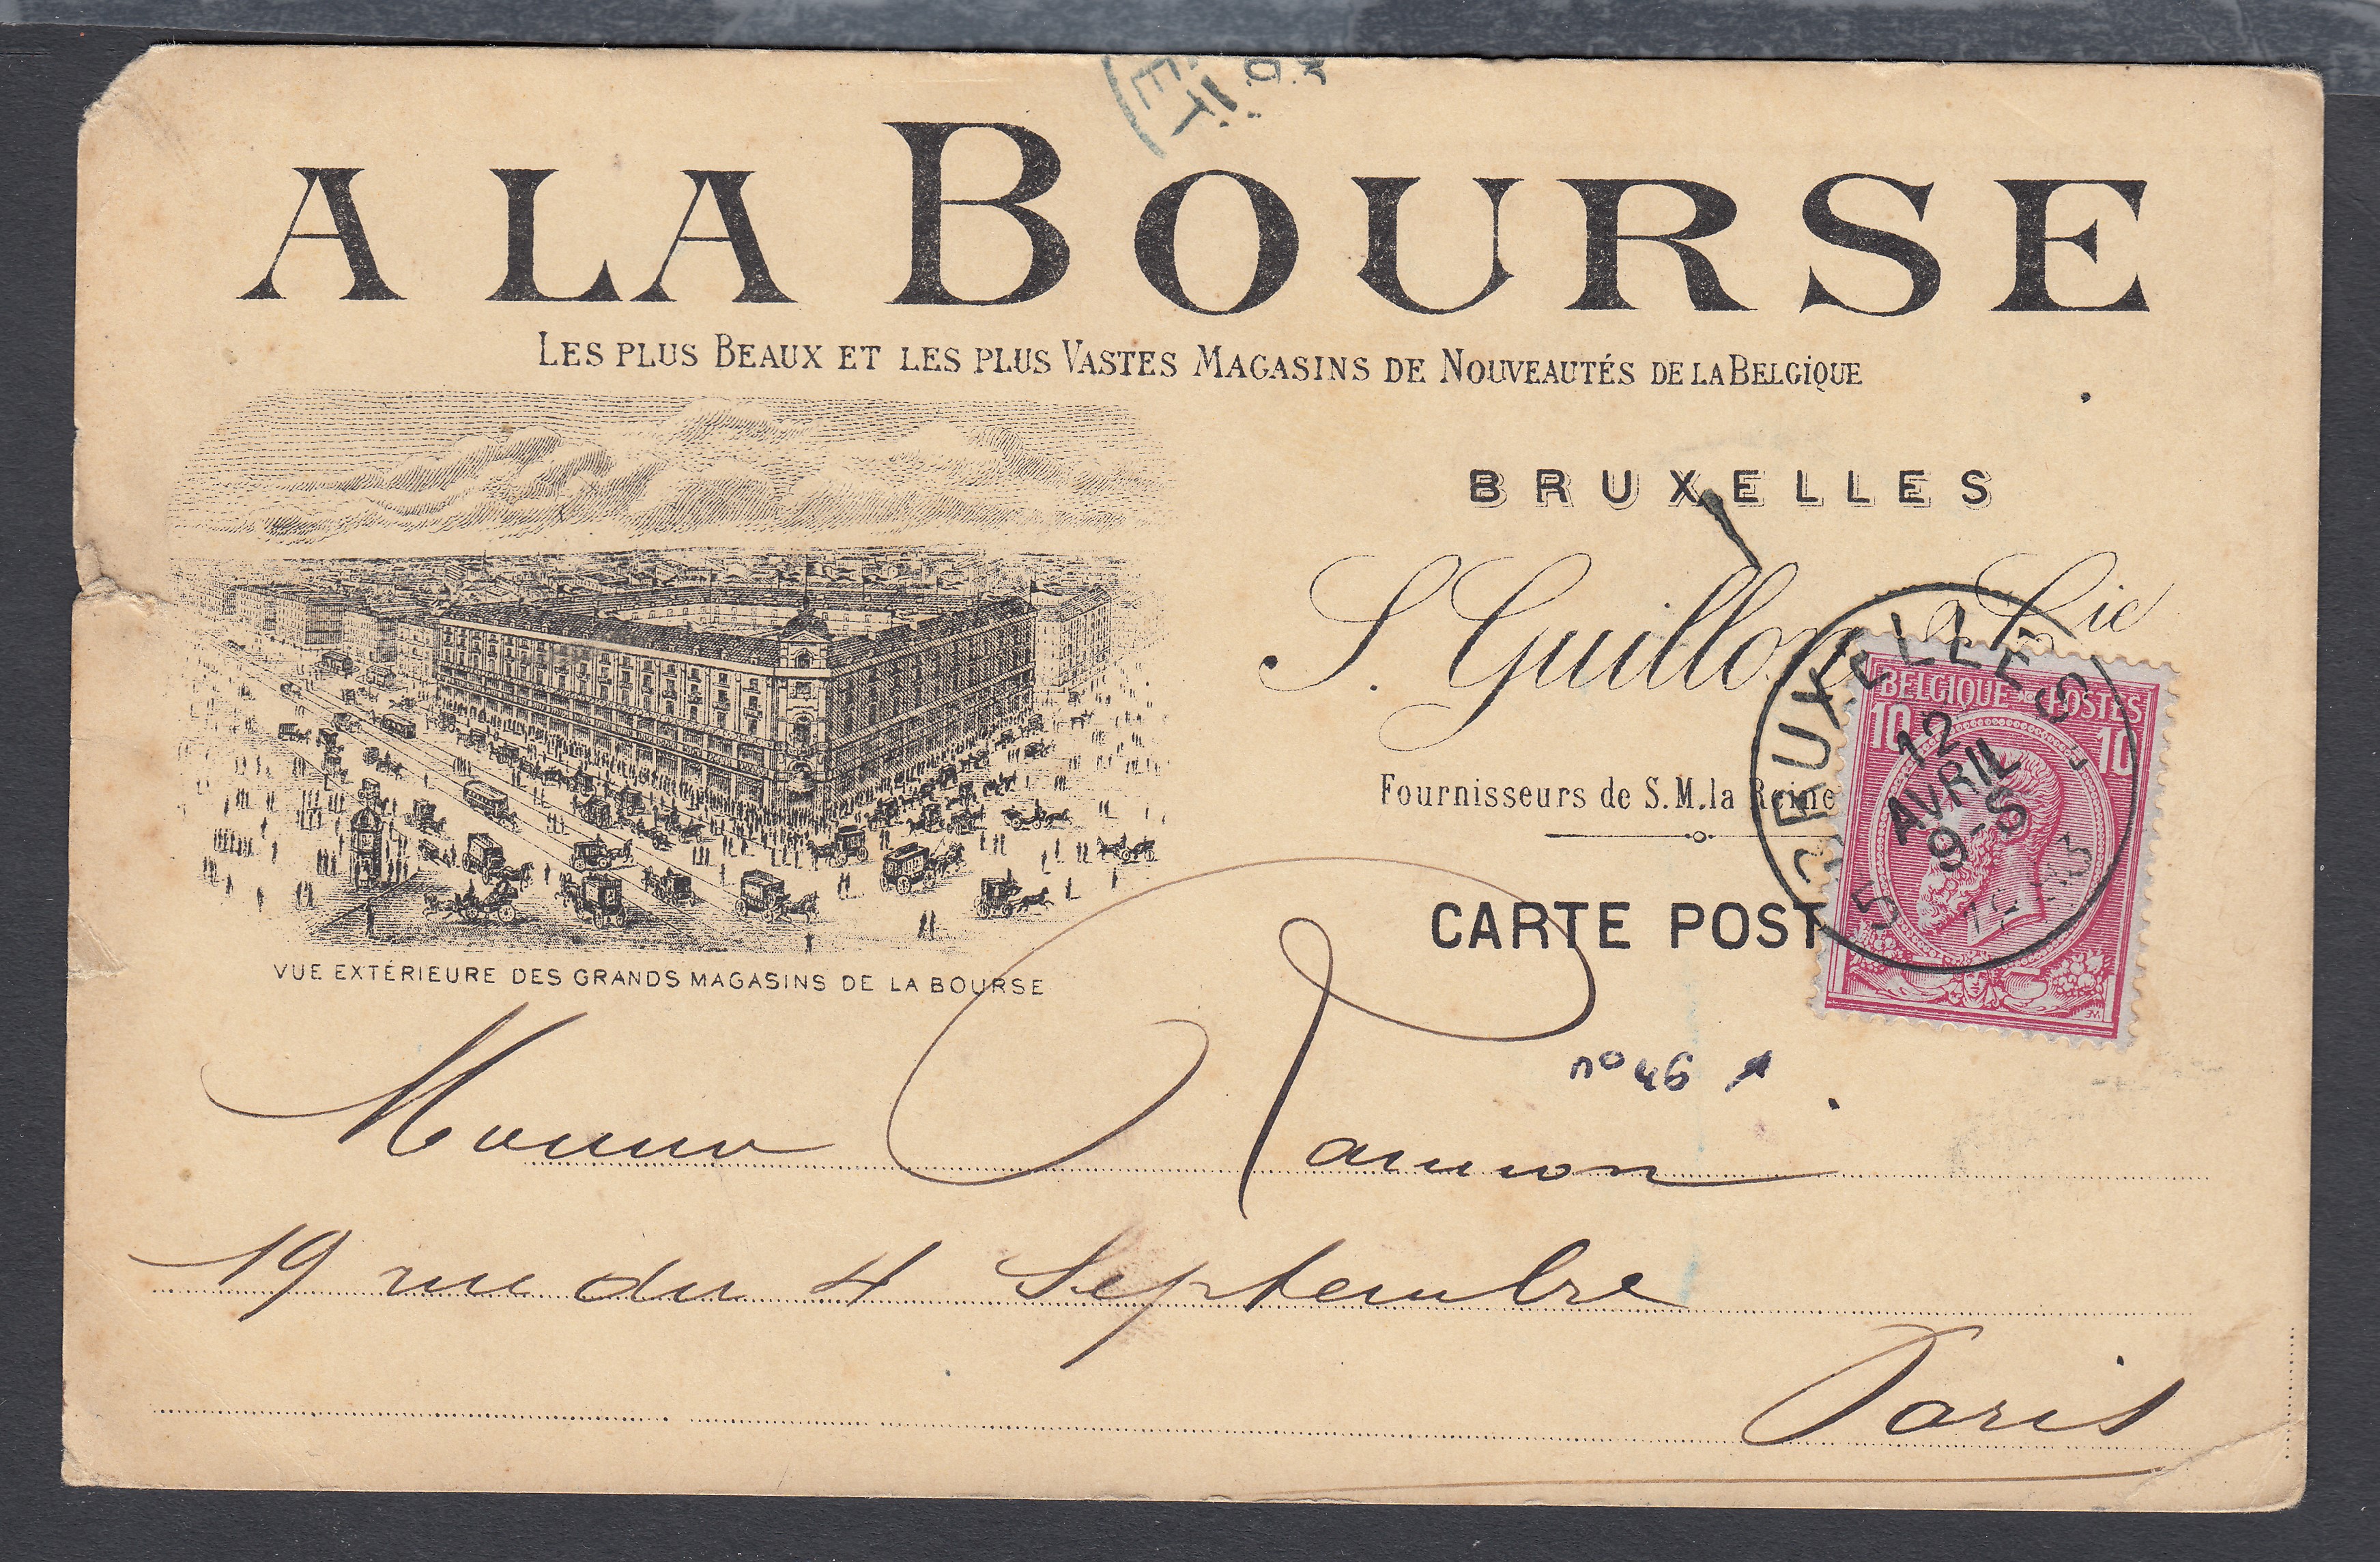 A LA BOURSE
LES PLUS BEAUX ET LES PLUS VASTES MAGASINS DE NOUVEAUTÉS DE LA BELGIQUE
BRUXELLES
S. Guillon & Cie
Fournisseurs de S.M. la Reine
CARTE POST
VUE EXTÉRIEURE DES GRANDS MAGASINS DE LA BOURSE
BELGIQUE POSTES
10 10
BRUXELLES 5
12
AVRIL
9-S
nº 46
19 rue du 4 Septembre
Paris